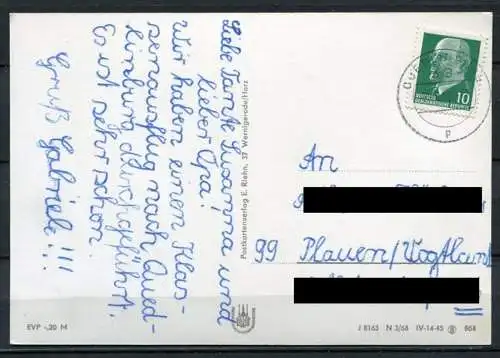 Liebe Tante Susanna und
lieber Opa!
Wir haben einen Klas-
senausflug nach Qued-
linburg durchgeführt.
Es ist sehr schön.
Gruß Gabriele!!!
Postkartenverlag E. Riehn, 37 Wernigerode/Harz
10
DEUTSCHE
DEMOKRATISCHE REPUBLIK
An
99 Plauen/Vogtland
EVP -,20 M
J 8163 N 3/68 IV-14-45 868